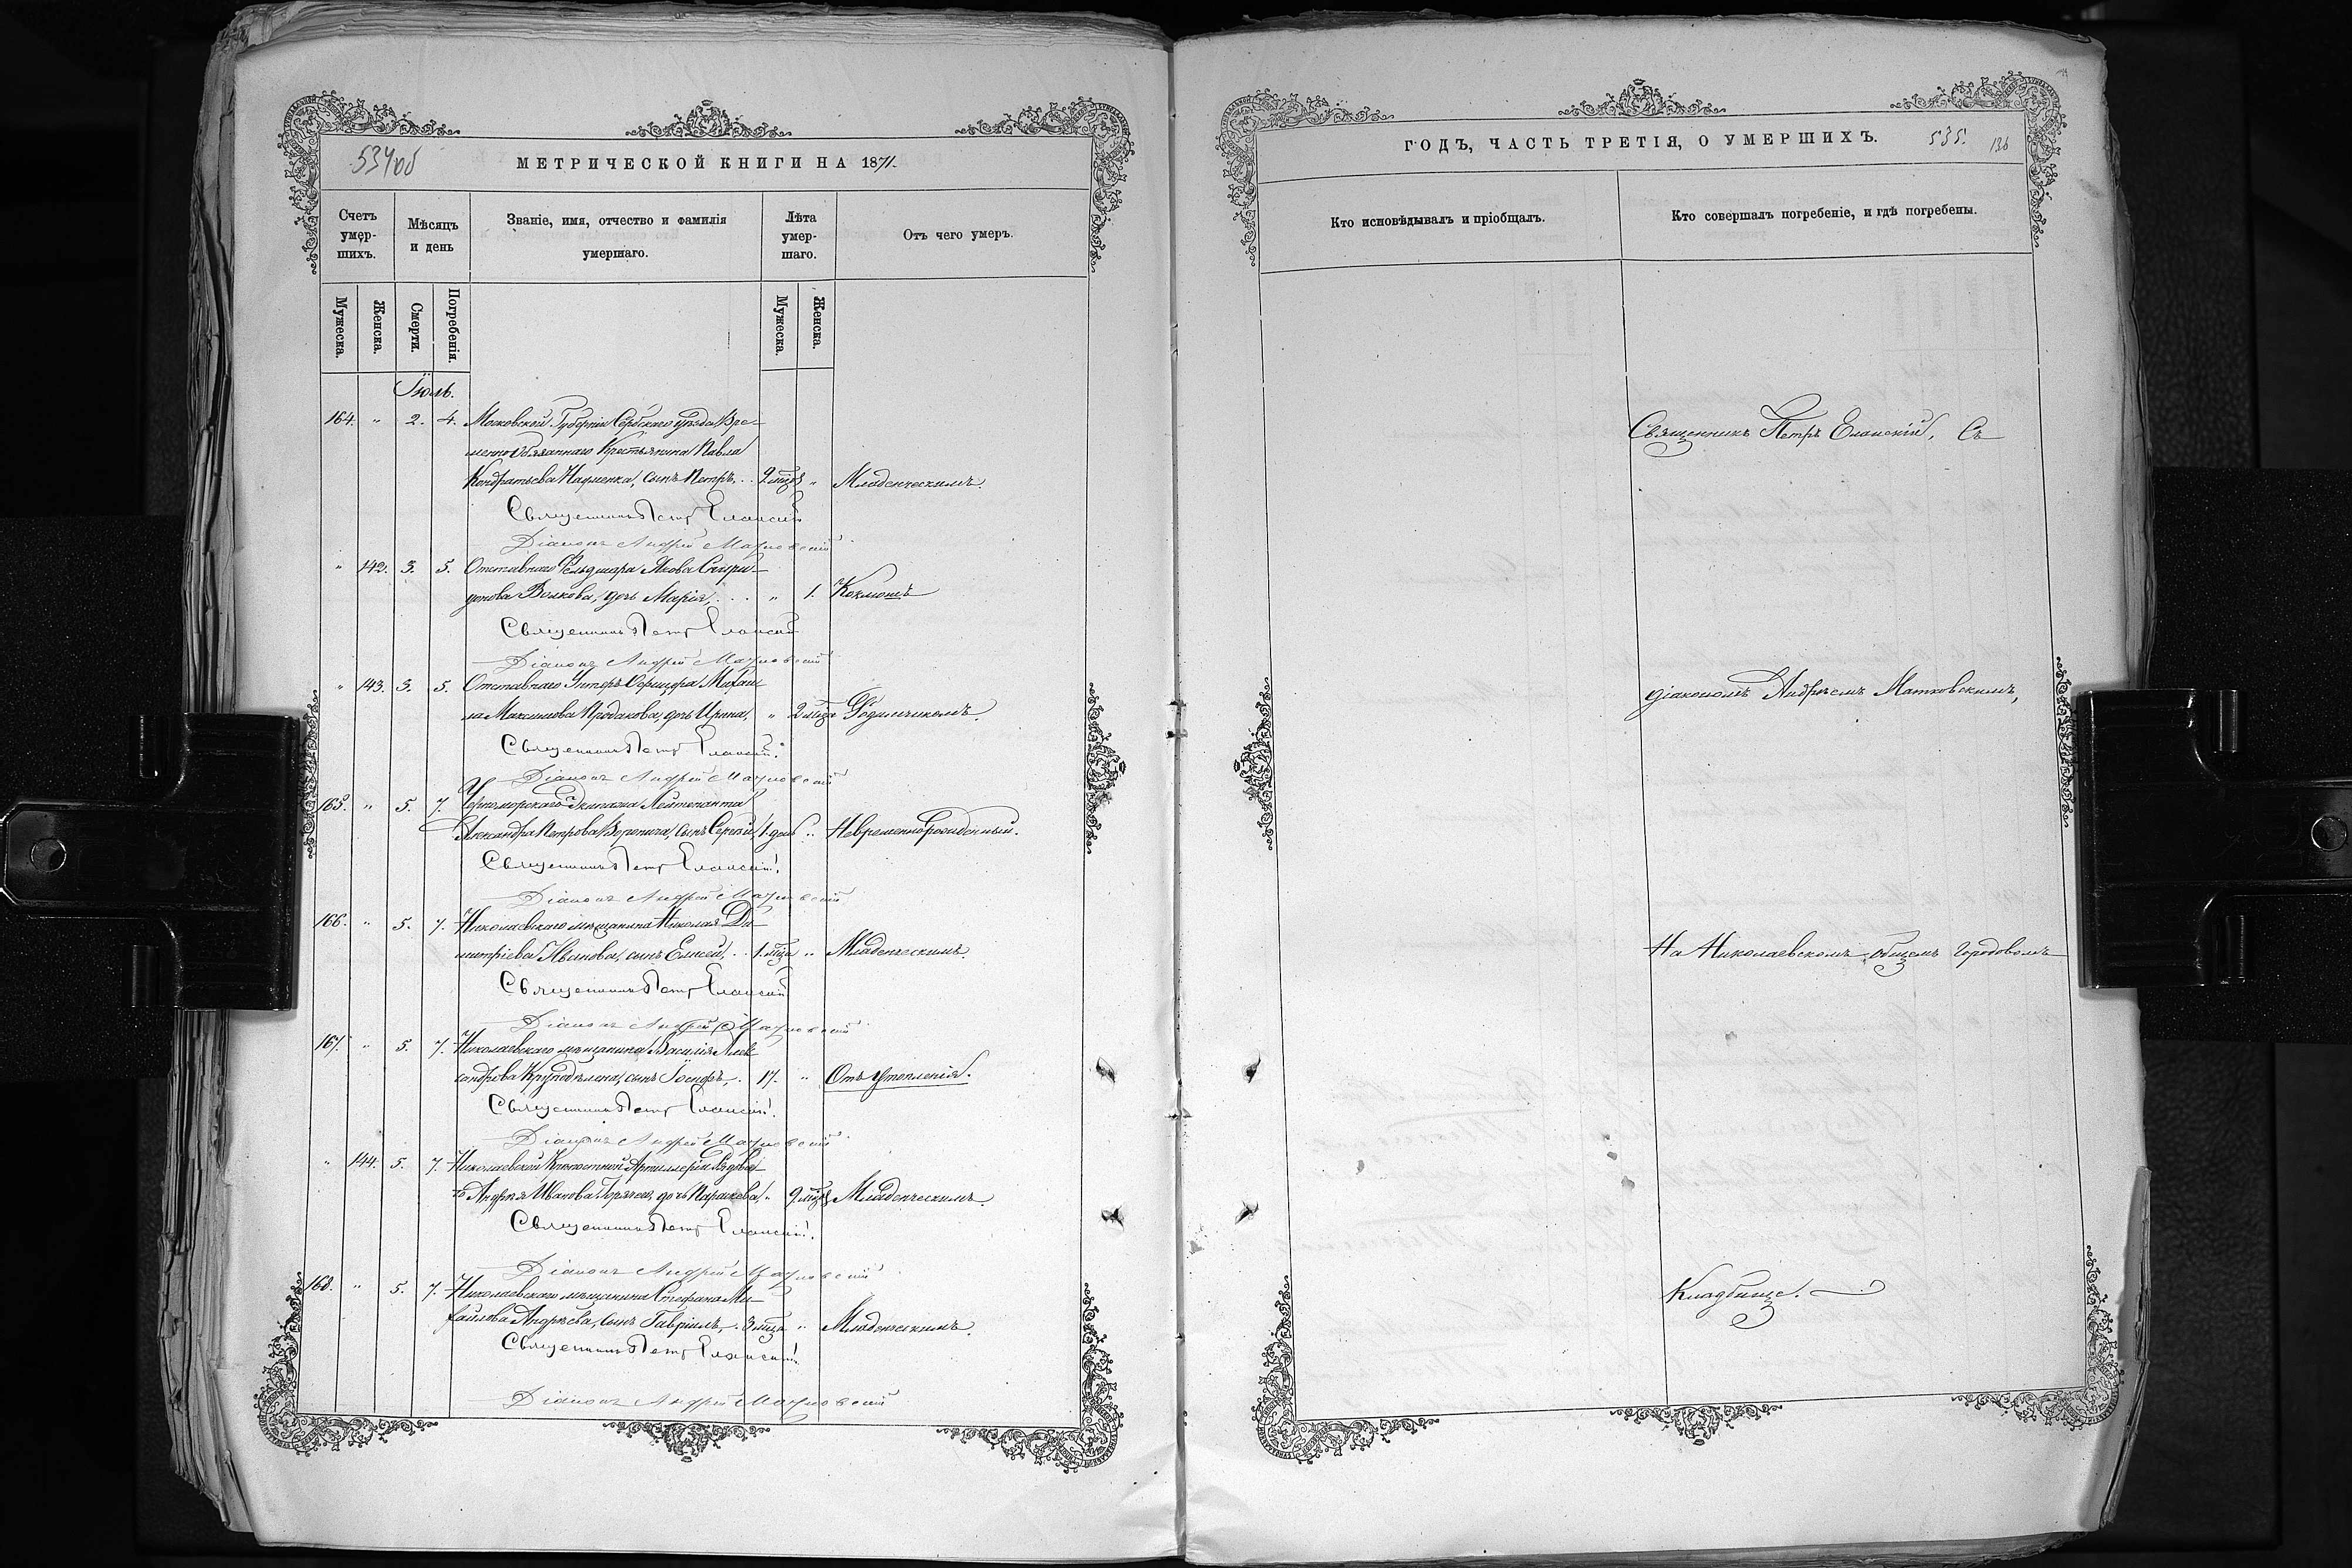 534об
МЕТРИЧЕСКОЙ КНИГИ НА 1871.
Счетъ умер-шихъ.
Мѣсяцъ и день
Званіе, имя, отчество и фамилія умершаго.
Лѣта умер-шаго.
Отъ чего умеръ.
Мужеска.
Женска.
Смерти.
Погребенія.
Мужеска.
Женска.
Іюль.
164. " 2. 4. Московской Губерніи уѣзда Вре-
менно Обязаннаго Крестьянина Павла
Кондратьева сынъ Петръ, 9 " Младенческимъ.
Священникъ Петръ Еланскій
Діаконъ Андрей Матковскій
" 142. 3. 5. Отставнаго Фельдшера Якова Спири-
донова Волкова, дочь Марія, " 1. Коклюшъ
Священникъ Петръ Еланскій
Діаконъ Андрей Матковскій
" 143. 3. 5. Отставнаго Унтеръ Офицера Михаи-
ла Максимова дочь Ирина, " 2 мца Родимчикомъ.
Священникъ Петръ Еланскій
Діаконъ Андрей Матковскій
165. " 5. 7. Черноморскаго Экипажа Лейтенанта
Александра Петрова сынъ Сергій, 1 день " Невременнорожденный.
Священникъ Петръ Еланскій
Діаконъ Андрей Матковскій
166. " 5. 7. Николаевскаго мѣщанина Николая Ди-
митріева Иванова, сынъ Елисей, 1 мца " Младенческимъ.
Священникъ Петръ Еланскій
Діаконъ Андрей Матковскій
167. " 5. 7. Николаевскаго мѣщанина Василія Алек-
сандрова сынъ Іосифъ, 17. " Отъ утопленія.
Священникъ Петръ Еланскій
Діаконъ Андрей Матковскій
" 144. 5. 7. Николаевской Крѣпостной Артиллеріи
Андрея Иванова дочь " 9 Младенческимъ.
Священникъ Петръ Еланскій
Діаконъ Андрей Матковскій
168. " 5. 7. Николаевскаго мѣщанина Стефана Ми-
хайлова Андрѣева, сынъ Гавріилъ, 3 мца " Младенческимъ.
Священникъ Петръ Еланскій
Діаконъ Андрей Матковскій
ГОДЪ, ЧАСТЬ ТРЕТІЯ, О УМЕРШИХЪ.
535.
136
Кто исповѣдывалъ и пріобщалъ.
Кто совершалъ погребеніе, и гдѣ погребены.
Священникъ Петръ Еланскій, Съ
діакономъ Андреемъ Матковскимъ,
На Николаевскомъ общемъ городовомъ
Кладбище.